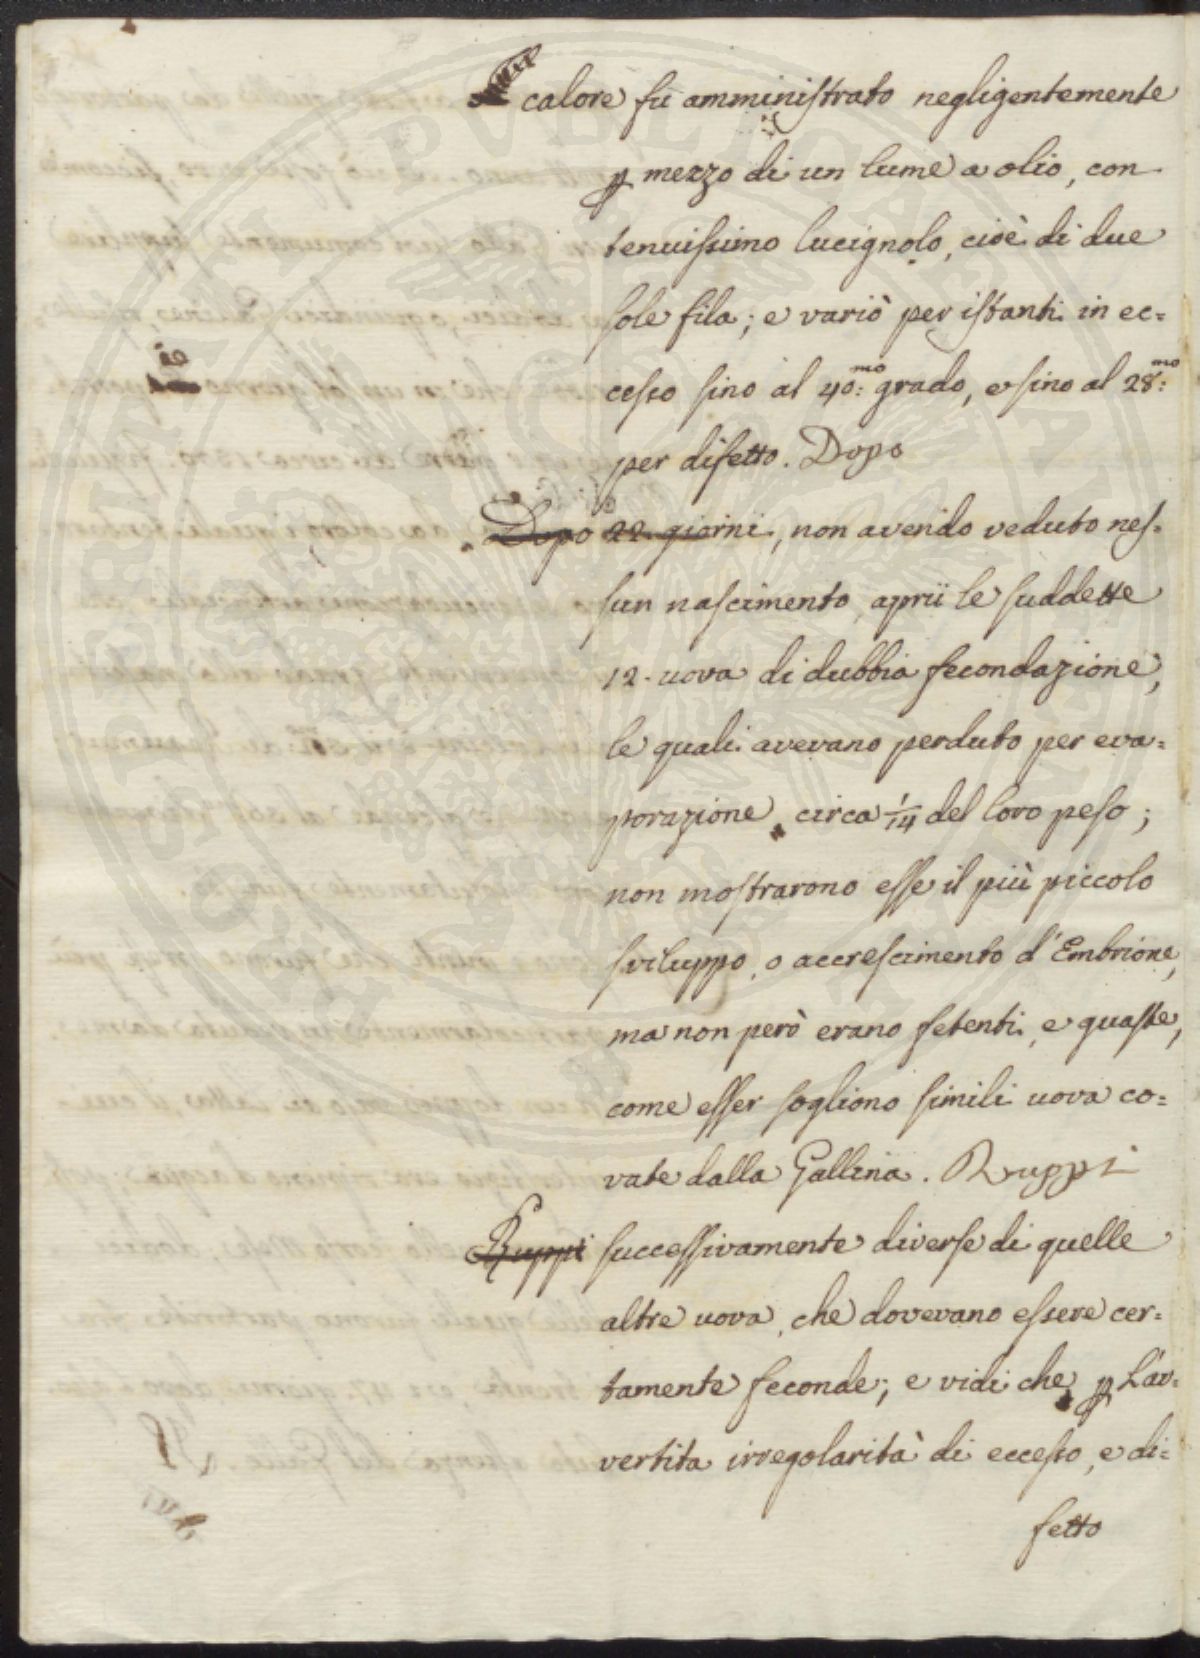 calore fù amministrato negligentemente
ꝑ mezzo di un lume a olio, con
tenuissimo lucignolo, cioè di due
sole fila; e variò per istanti in ec=
cesso sino al 40:mo grado, e sino al 28:mo
per difetto. Dopo
Dopo 22. giorni, non avendo veduto nes=
sun nascimento, aprii le suddette
12. uova di dubbia fecondazione,
le quali avevano perduto per eva=
porazione circa 1/14 del loro peso;
non mostrarono esse il più piccolo
sviluppo, o accrescimento d'Embrione,
ma non però erano fetenti, e guaste,
come esser sogliono simili uova co=
vate dalla Gallina. Ruppi
Ruppi successivamente diverse di quelle
altre uova, che dovevano essere cer=
tamente feconde; e vidi che ꝑ l'av=
vertita irregolarità di eccesso, e di=
fetto